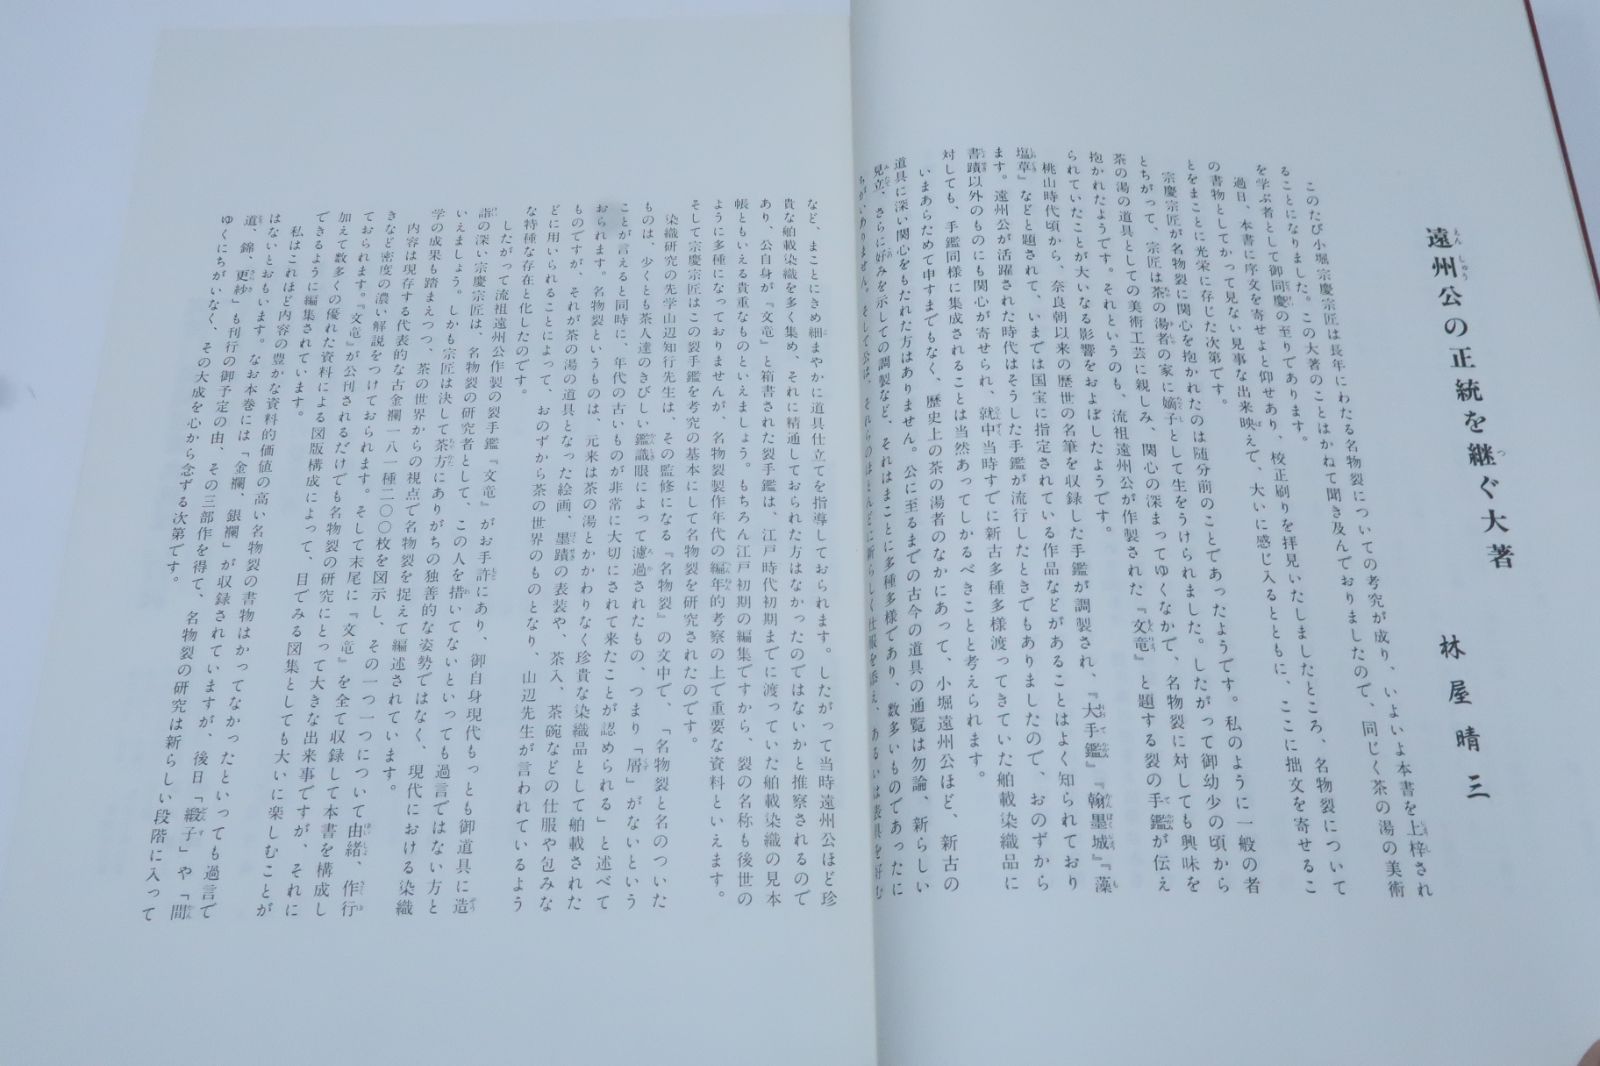 遠州公の正統を継ぐ大著
林屋晴三
このたび小堀宗慶宗匠は長年にわたる名物裂についての考究が成り、いよいよ本書を上梓され
ることになりました。この大著のことはかねて聞き及んでおりましたので、同じく茶の湯の美術
を学ぶ者として御同慶の至りであります。
過日、本書に序文を寄せよと仰せあり、校正刷りを拝見いたしましたところ、名物裂について
の書物としてかって見ない見事な出来映えで、大いに感じ入るとともに、ここに拙文を寄せるこ
とをまことに光栄に存じた次第です。
宗慶宗匠が名物裂に関心を抱かれたのは随分前のことであったようです。私のように一般の者
とちがって、宗匠は茶の湯者の家に嫡子として生をうけられました。したがって御幼少の頃から
茶の湯の道具としての美術工芸に親しみ、関心の深まってゆくなかで、名物裂に対しても興味を
抱かれたようです。それというのも、流祖遠州公が作製された『文竜』と題する裂の手鑑が伝え
られていたことが大いなる影響をおよぼしたようです。
桃山時代頃から、奈良朝以来の歴世の名筆を収録した手鑑が調製され、『大手鑑』『翰墨城』『藻
塩草』などと題されて、いまでは国宝に指定されている作品などがあることはよく知られており
ます。遠州公が活躍された時代はそうした手鑑が流行したときでもありましたので、おのずから
書蹟以外のものにも関心が寄せられ、就中当時すでに新古多種多様渡ってきていた舶載染織品に
対しても、手鑑同様に集成されることは当然あってしかるべきことと考えられます。
いまあらためて申すまでもなく、歴史上の茶の湯者のなかにあって、小堀遠州公ほど、新古の
道具に深い関心をもたれた方はありません。公に至るまでの古今の道具の通覧は勿論、新らしい
見立、さらに好みを示しての調製など、それはまことに多種多様であり、数多いものであったに
ちがいありません。そして公は、それらのほとんどに新らしく仕服を添え、あるいは表具を好む
など、まことにきめ細まやかに道具仕立てを指導しておられます。したがって当時遠州公ほど珍
貴な舶載染織を多く集め、それに精通しておられた方はなかったのではないかと推察されるので
あり、公自身が『文竜』と箱書された裂手鑑は、江戸時代初期までに渡っていた舶載染織の見本
帳ともいえる貴重なものといえましょう。もちろん江戸初期の編集ですから、裂の名称も後世の
ように多種になっておりませんが、名物裂製作年代の編年的考察の上で重要な資料といえます。
そして宗慶宗匠はこの裂手鑑を考究の基本にして名物裂を研究されたのです。
染織研究の先学山辺知行先生は、その監修になる『名物裂』の文中で、「名物裂と名のついた
ものは、少くとも茶人達のきびしい鑑識眼によって濾過されたもの、つまり「屑」がないという
ことが言えると同時に、年代の古いものが非常に大切にされて来たことが認められる」と述べて
おられます。名物裂というものは、元来は茶の湯とかかわりなく珍貴な染織品として舶載された
ものですが、それが茶の湯の道具となった絵画、墨蹟の表装や、茶入、茶碗などの仕服や包みな
どに用いられることによって、おのずから茶の世界のものとなり、山辺先生が言われているよう
な特種な存在と化したのです。
したがって流祖遠州公作製の裂手鑑『文竜』がお手許にあり、御自身現代もっとも御道具に造
詣の深い宗慶宗匠は、名物裂の研究者として、この人を措いてないといっても過言ではない方と
いえましょう。しかも宗匠は決して茶方にありがちの独善的な姿勢ではなく、現代における染織
学の成果も踏まえつつ、茶の世界からの視点で名物裂を捉えて編述されています。
内容は現存する代表的な古金襴一八一種二〇〇枚を図示し、その一つ一つについて由緒、作行
きなど密度の濃い解説をつけておられます。そして末尾に『文竜』を全て収録して本書を構成し
ておられます。『文竜』が公刊されるだけでも名物裂の研究にとって大きな出来事ですが、それに
加えて数多くの優れた資料による図版構成によって、目でみる図集としても大いに楽しむことが
できるように編集されています。
私はこれほど内容の豊かな資料的価値の高い名物裂の書物はかってなかったといっても過言で
はないとおもいます。なお本巻には「金襴、銀襴」が収録されていますが、後日「緞子」や「間
道、錦、更紗」も刊行の御予定の由、その三部作を得て、名物裂の研究は新らしい段階に入って
ゆくにちがいなく、その大成を心から念ずる次第です。